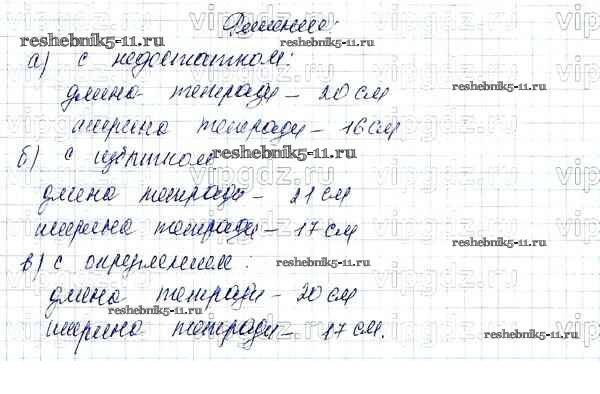 Решение:
а) с недостатком:
длина тетради – 20 см
ширина тетради – 16 см
б) с избытком
длина тетради – 21 см
ширина тетради – 17 см
в) с округлением:
длина тетради – 20 см
ширина тетради – 17 см.
reshebnik5-11.ru
reshebnik5-11.ru
reshebnik5-11.ru
reshebnik5-11.ru
reshebnik5-11.ru
reshebnik5-11.ru
reshebnik5-11.ru
vipgdz.ru